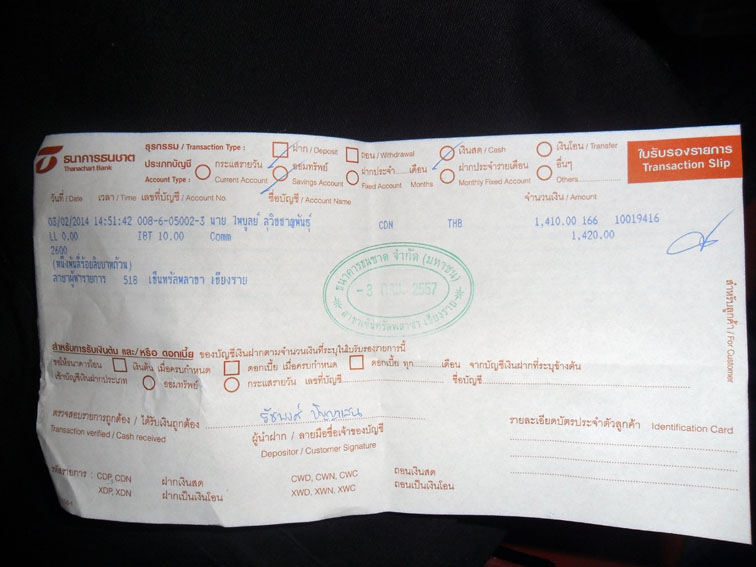 ธนาคารธนชาต
Thanachart Bank
ธุรกรรม / Transaction Type : ฝาก / Deposit ถอน / Withdrawal เงินสด / Cash เงินโอน / Transfer
ประเภทบัญชี กระแสรายวัน ออมทรัพย์ ฝากประจำ......เดือน ฝากประจำรายเดือน อื่นๆ
Account Type : Current Account Savings Account Fixed Account Months Monthly Fixed Account Others
ใบรับรองรายการ
Transaction Slip
วันที่ / Date เวลา / Time เลขที่บัญชี / Account No. ชื่อบัญชี / Account Name จำนวนเงิน / Amount
03/02/2014 14:51:42 008-6-05002-3 นาย ไพบูลย์ CDN THB 1,410.00 166 10019416
LL 0.00 IBT 10.00 Comm 1,420.00
2600
(หนึ่งพันสี่ร้อยสิบบาทถ้วน)
สาขาผู้ทำรายการ 518 เซ็นทรัลพลาซา เชียงราย
ธนาคารธนชาต จำกัด (มหาชน)
- 3 ก.พ. 2557
สาขาเซ็นทรัลพลาซา เชียงราย
สำหรับลูกค้า / For Customer
สำหรับการรับเงินต้น และ/หรือ ดอกเบี้ย ของบัญชีเงินฝากตามจำนวนเงินที่ระบุในใบรับรองรายการนี้
ขอให้ธนาคารโอน เงินต้น เมื่อครบกำหนด ดอกเบี้ย เมื่อครบกำหนด ดอกเบี้ย ทุก......เดือน จากบัญชีเงินฝากที่ระบุข้างต้น
เข้าบัญชีเงินฝากประเภท ออมทรัพย์ กระแสรายวัน เลขที่บัญชี ชื่อบัญชี
ตรวจสอบรายการถูกต้อง / ได้รับเงินถูกต้อง
Transaction verified / Cash received
ผู้นำฝาก / ลายมือชื่อเจ้าของบัญชี
Depositor / Customer Signature
รายละเอียดบัตรประจำตัวลูกค้า Identification Card
รหัสรายการ : CDP, CDN ฝากเงินสด CWD, CWN, CWC ถอนเงินสด
XDP, XDN ฝากเป็นเงินโอน XWD, XWN, XWC ถอนเป็นเงินโอน